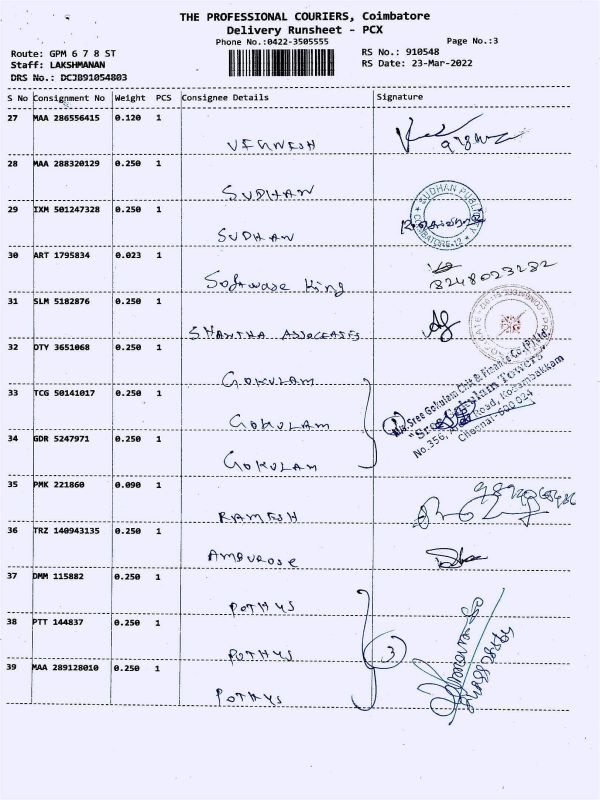 THE PROFESSIONAL COURIERS, Coimbatore
Delivery Runsheet - PCX
Phone No.:0422-3505555
Page No.:3
Route: GPM 6 7 8 ST
RS No.: 910548
Staff: LAKSHMANAN
RS Date: 23-Mar-2022
DRS No.: DCJB91054803
S No Consignment No Weight PCS Consignee Details Signature
27 MAA 286556415 0.120 1
VEGNESH
28 MAA 288320129 0.250 1
SUDHAN
29 IXM 501247328 0.250 1
SUDHAN
SUDHAN PUBLI
COIMBATORE-12
30 ART 1795834 0.023 1
Software King
8248023232
31 SLM 5182876 0.250 1
SHANTHA ASSOCEATES
32 DTY 3651068 0.250 1
GOKULAM
33 TCG 50141017 0.250 1
GOKULAM
34 GDR 5247971 0.250 1
GOKULAM
Sree Gokulam Chit & Finance Co.(P)Ltd.
"Sree Gokulam Towers"
No.356, Road, Kodambakkam
Chennai-600 024
35 PMK 221860 0.090 1
RAMESH
36 TRZ 140943135 0.250 1
AMBUROSE
37 DMM 115882 0.250 1
POTHYS
38 PTT 144837 0.250 1
POTHYS
3
39 MAA 289128010 0.250 1
POTHYS